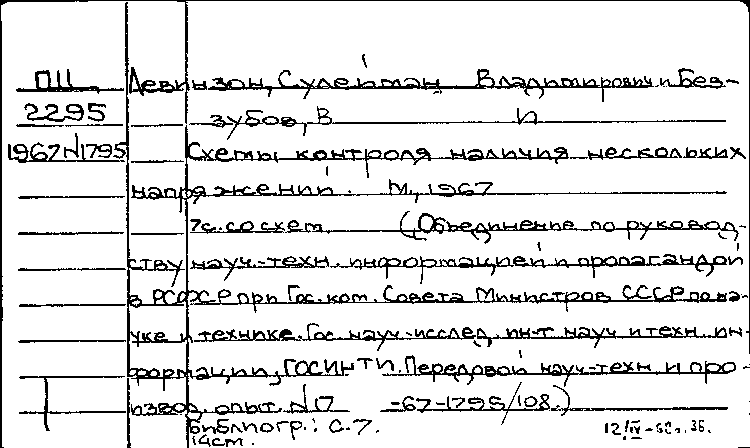 П11
2295
1967 N1795
Левинзон, Сулейман Владимирович и Без-
зубов, В И
Схемы контроля наличия нескольких
напряжений. М., 1967
7с. со схем. (Объединение по руковод-
ству науч.-техн. информацией и пропагандой
в РСФСР при Гос. ком. Совета Министров СССР по на-
уке и технике. Гос. науч.-исслед. ин-т науч и техн. ин-
формации, ГОСИНТИ. Передовой науч-техн. и про-
извод. опыт. N17 -67-1795/108.)
Библиогр.: с. 7.
14см.